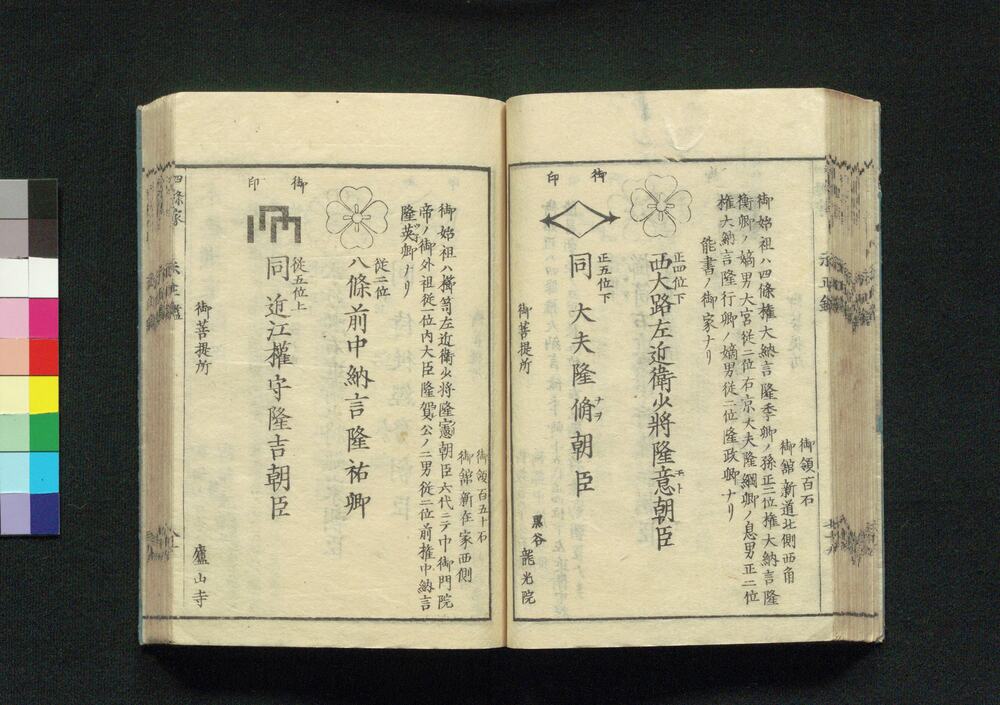 御領百石
御舘新道北側西角
御始祖ハ四條權大納言隆季卿ノ孫正二位權大納言隆
衡卿ノ嫡男大宮從二位右京大夫隆綱卿ノ息男正二位
權大納言隆行卿ノ嫡男從二位隆政卿ナリ
能書ノ御家ナリ
正四位下
西大路左近衛少將隆意朝臣
ヲト
御印
正五位下
同大夫隆脩朝臣
ナヲ
御菩提所
黒谷
龍光院
御領百五十石
御舘新在家西側
御始祖ハ櫛笥左近衛少將隆憲朝臣六代ニテ中御門院
帝ノ御外祖從一位内大臣隆賀公ノ二男從二位前權中納言
隆英卿ナリ
從二位
八條前中納言隆祐卿
御印
從五位上
同近江權守隆吉朝臣
御菩提所
廬山寺
四條家